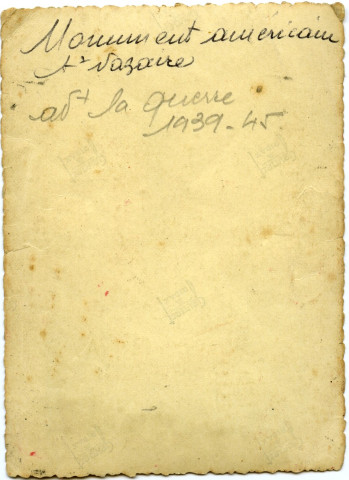 Monument américain
St Nazaire
avt la guerre
1939-45.